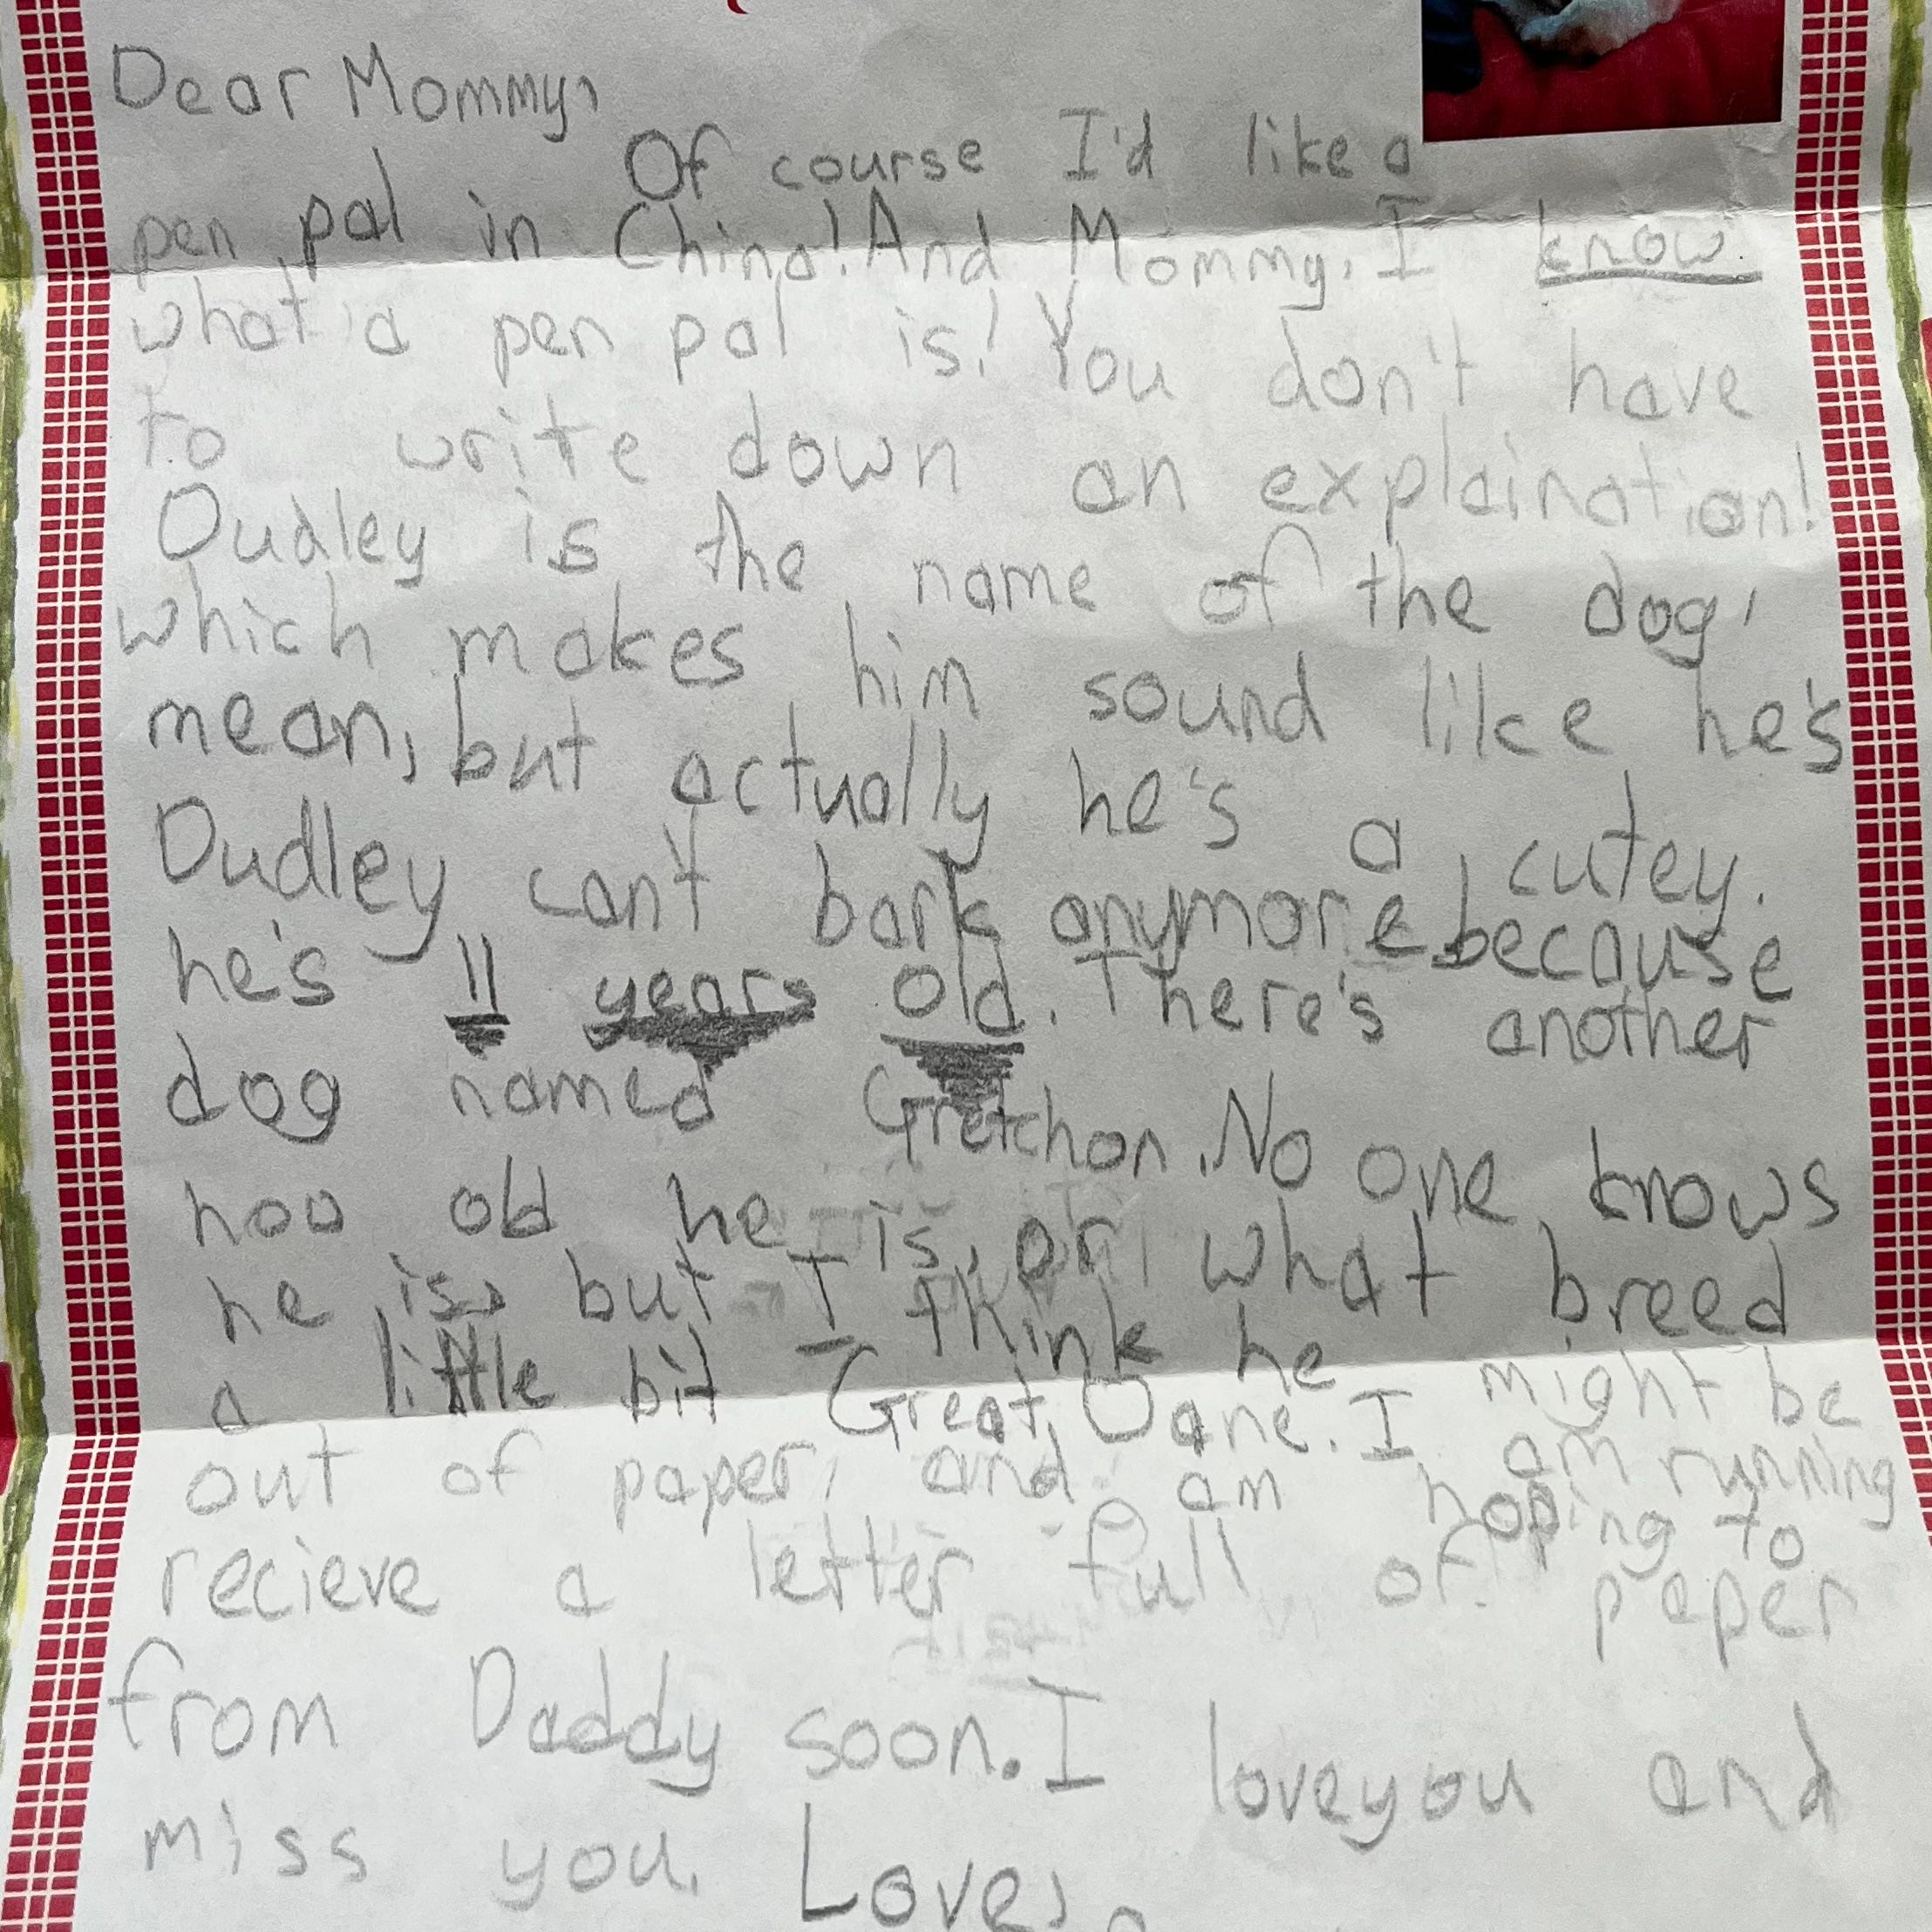 Dear Mommy,
Of course I'd like a
pen pal in China! And Mommy, I know
what a pen pal is! You don't have
to write down an explaination!
Dudley is the name of the dog,
which makes him sound like he's
mean, but actually he's a cutey.
Dudley can't bark anymore because
he's 11 years old. There's another
dog named Gretchon. No one knows
hoo old he is, or what breed
he is, but I think he might be
a little bit Great Dane. I am running
out of paper, and am hoping to
recieve a letter full of paper
from Daddy soon. I love you and
miss you. Love,